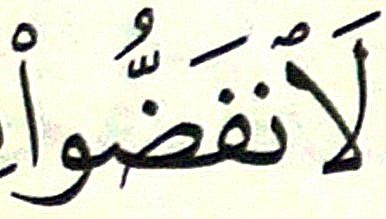 لَٱنفَضُّوا۟